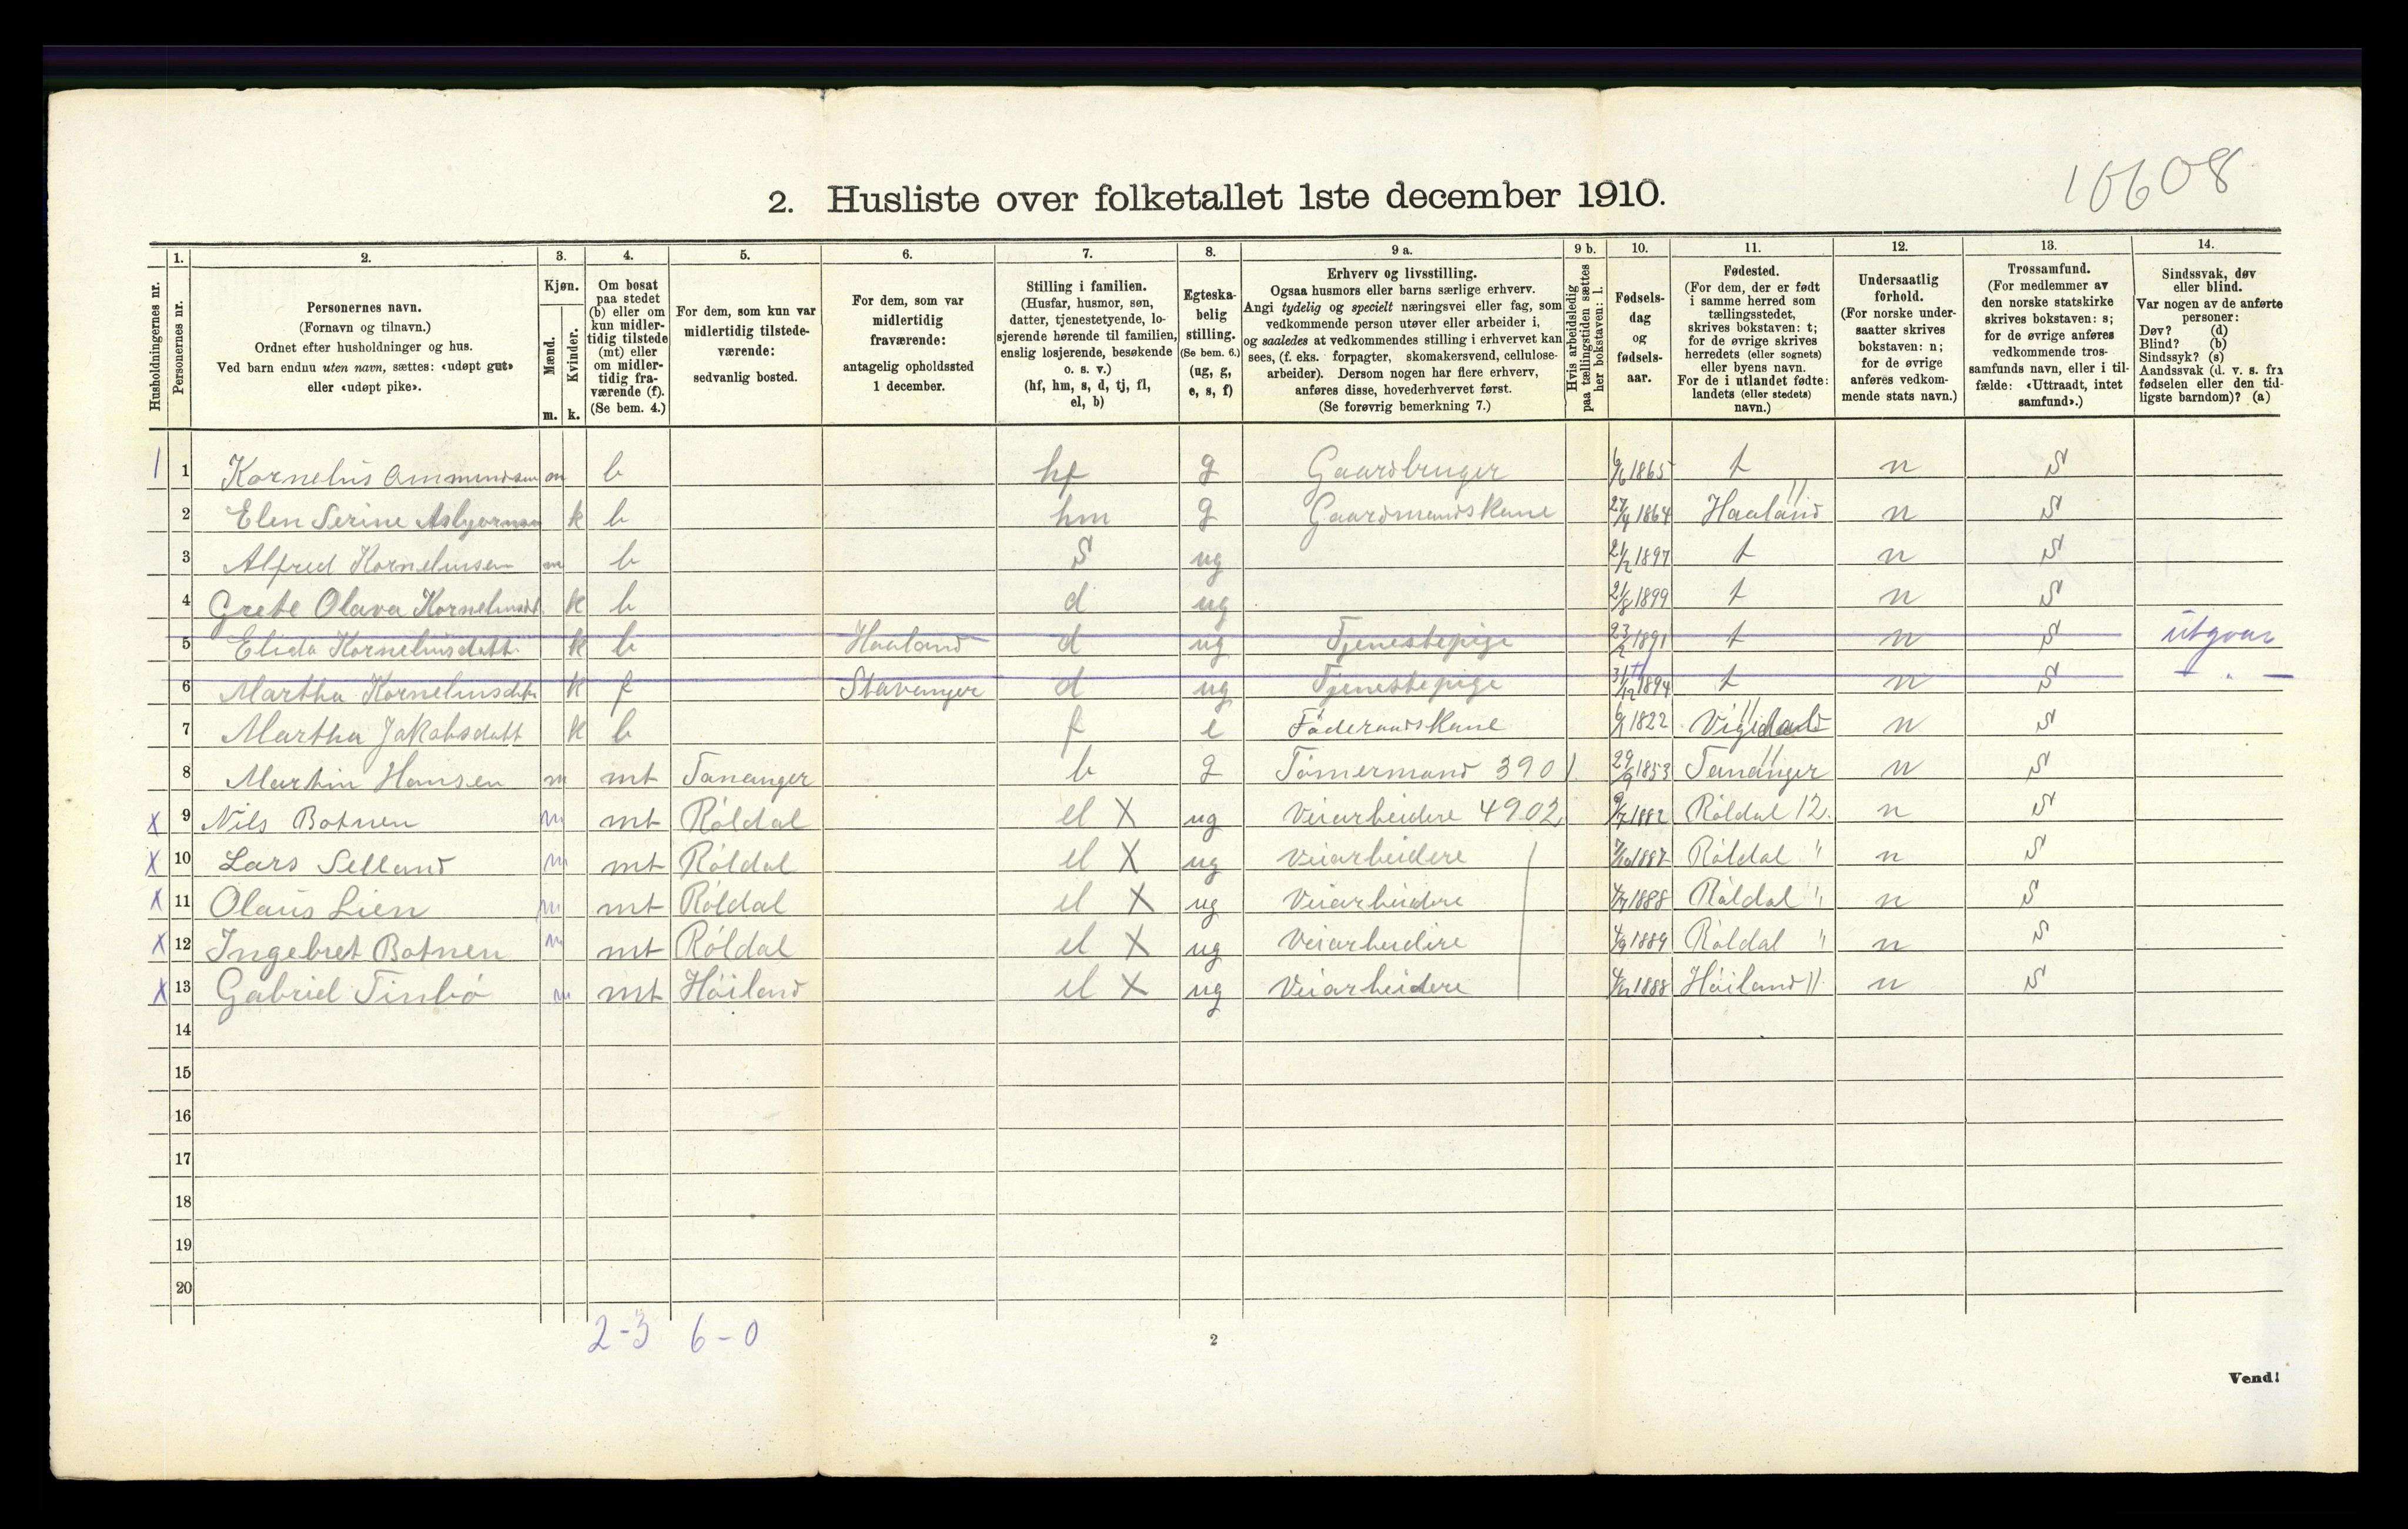 10608
2. Husliste over folketallet 1ste december 1910.
Husholdningernes nr.
1. Personernes nr.
2. Personernes navn.
(Fornavn og tilnavn.)
Ordnet efter husholdninger og hus.
Ved barn endnu uten navn, sættes: «udøpt gut»
eller «udøpt pike».
3. Kjøn.
Mænd. m.
Kvinder. k.
4. Om bosat
paa stedet
(b) eller om
kun midler-
tidig tilstede
(mt) eller
om midler-
tidig fra-
værende (f).
(Se bem. 4.)
5. For dem, som kun var
midlertidig tilstede-
værende:
sedvanlig bosted.
6. For dem, som var
midlertidig
fraværende:
antagelig opholdssted
1 december.
7. Stilling i familien.
(Husfar, husmor, søn,
datter, tjenestetyende, lo-
sjerende hørende til familien,
enslig losjerende, besøkende
o. s. v.)
(hf, hm, s, d, tj, fl,
el, b)
8. Egteska-
belig
stilling.
(Se bem. 6.)
(ug, g,
e, s, f)
9 a. Erhverv og livsstilling.
Ogsaa husmors eller barns særlige erhverv.
Angi tydelig og specielt næringsvei eller fag, som
vedkommende person utøver eller arbeider i,
og saaledes at vedkommendes stilling i erhvervet kan
sees, (f. eks. forpagter, skomakersvend, cellulose-
arbeider). Dersom nogen har flere erhverv,
anføres disse, hovederhvervet først.
(Se forøvrig bemerkning 7.)
9 b. Hvis arbeidsledig
paa tællingstiden sættes
her bokstaven: l.
10. Fødsels-
dag
og
fødsels-
aar.
11. Fødested.
(For dem, der er født
i samme herred som
tællingsstedet,
skrives bokstaven: t;
for de øvrige skrives
herredets (eller sognets)
eller byens navn.
For de i utlandet fødte:
landets (eller stedets)
navn.)
12. Undersaatlig
forhold.
(For norske under-
saatter skrives
bokstaven: n;
for de øvrige
anføres vedkom-
mende stats navn.)
13. Trossamfund.
(For medlemmer av
den norske statskirke
skrives bokstaven: s;
for de øvrige anføres
vedkommende tros-
samfunds navn, eller i til-
fælde: «Uttraadt, intet
samfund».)
14. Sindssvak, døv
eller blind.
Var nogen av de anførte
personer:
Døv? (d)
Blind? (b)
Sindssyk? (s)
Aandssvak (d. v. s. fra
fødselen eller den tid-
ligste barndom)? (a)
1 1 Kornelius Ommundsen m b hf g Gaardbruger 1865 t n S
2 Elen Serine Asbjornsen k b hm g Gaardmandskone 27/4 1864 Haaland n S
3 Alfred Korneliusen m b S ug 21/2 1897 t n S
4 Grete Olava Korneliusdt. k b d ug 21/8 1899 t n S
5 Elida Kornelinsdatt. k b Haaland d ug Tjenestepige 23/2 1891 t n S utgaar
6 Martha Kornelinsdatr k f Stavanger d ug Tjenestepige 31/12 1894 t n S - " -
7 Martha Jakobsdatt k b f e Föderaadskone 1822 n S
8 Martin Hansen m mt Tananger b g Tömermand 390 29/9 1853 Tananger n S
X 9 Nils Botnen m mt Röldal el X ug Veiarbeidere 4902 1882 Röldal 12. n S
X 10 Lars Selland m mt Röldal el X ug Veiarbeidere 1887 Röldal " n S
X 11 Olaus Lien m mt Röldal el X ug Veiarbeidere 1888 Röldal " n S
X 12 Ingebret Botnen m mt Röldal el X ug Veiarbeidere 1889 Röldal " n S
X 13 Gabriel Tinbö m mt Höiland el X ug Veiarbeidere 1888 Höiland 11. n S
14
15
16
17
18
19
20
2-3 6-0
2
Vend!